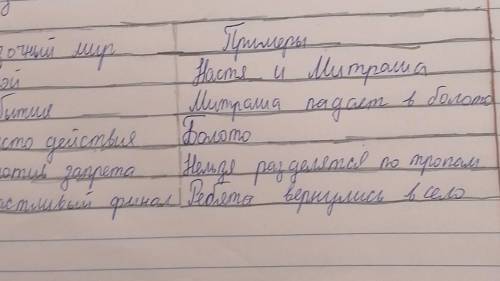 зочный мир Примеры
ой Настя и Митраша
бытия Митраша падает в болото
сто действия Болото
отив запрета Нельзя разделятся по тропам
астливый финал Ребята вернулись в село